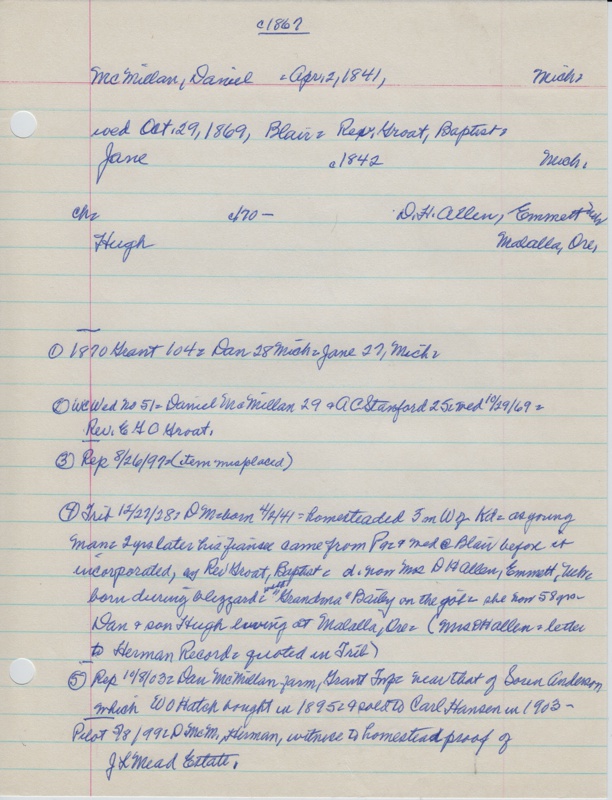 c1867
McMillan, Daniel = Apr. 2, 1841, Mich=
wed Oct. 29, 1869, Blair = Rev. Groat, Baptist=
Jane c1842 Mich.
ch= c/70 – D.H. Allen, Emmett Neb
Hugh Molalla, Ore,
① 1870 Grant 104= Dan 28 Mich= Jane 27, Mich=
② Wed No 51= Daniel McMillan 29 & AC Stanford 25= wed 10/29/69=
Rev. E G O Groat.
③ Rep 8/26/97= (item misplaced)
④ Trib 12/27/28= D M= born 4/2/41= homesteaded 5 m W of Kd= as young
man= 2 yrs later his fiancee came from Pa= & wed @ Blair before it
incorporated, by Rev Groat, Baptist= d. now Mrs D H Allen, Emmett, Neb=
born during blizzard= with "Grandma" Bailey on the job= she now 58 yrs=
Dan & son Hugh living at Molalla, Ore= (Mrs D H Allen= letter
to Herman Record= quoted in Trib)
⑤ Rep 10/8/03= Dan McMillan farm, Grant Twp= near that of Soren Anderson
which W O Hatch bought in 1895= & sold to Carl Hansen in 1903–
Pilot 3/8/99= D McM, Herman, witness to homestead proof of
J L Mead Estate.